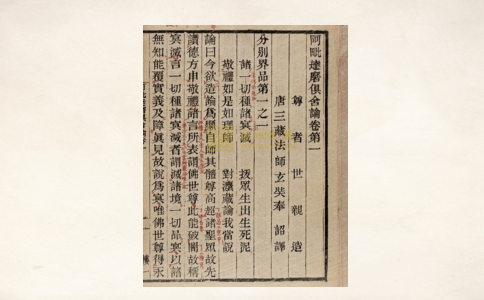 阿毗達磨俱舍論卷第一
尊者世親造
唐三藏法師玄奘奉 詔譯
分別界品第一之一
諸一切種諸冥滅 拔眾生出生死泥
敬禮如是如理師 對法藏論我當說
論曰今欲造論為顯自師其體尊高超諸聖眾故先
讚德方申敬禮諸言所表謂佛世尊此能破闇故稱
冥滅言一切種諸冥滅者謂滅諸境一切品冥以諸
無知能覆實義及障真見故說為冥唯佛世尊得永